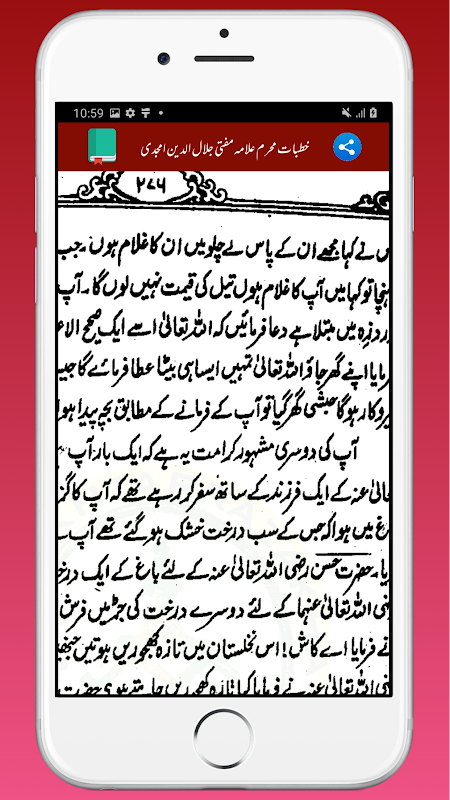 10:59
خطبات محرم علامہ مفتی جلال الدین امجدی
۲۷۶
س نے کہا مجھے ان کے پاس لے چلو میں ان کا غلام ہوں۔ جب
ہنچا تو کہا میں آپ کا غلام ہوں تیل کی قیمت نہیں لوں گا۔ آپ
درد زہ میں مبتلا ہے دعا فرمائیں کہ اللہ تعالیٰ اسے ایک صحیح الاء
رمایا اپنے گھر جاؤ اللہ تعالیٰ تمہیں ایسا ہی بیٹا عطا فرمائے گا جیسے
یروکار ہوگا حبشی گھر گیا تو آپ کے فرمانے کے مطابق بچہ پیدا ہوا
آپ کی دوسری مشہور کرامت یہ ہے کہ ایک بار آپ
عالیٰ عنہ کے ایک فرزند کے ساتھ سفر کر رہے تھے کہ آپ کا گز
رغ میں ہوا کہ جس کے سب درخت خشک ہو گئے تھے آپ نے
یا۔ حضرت حسن رضی اللہ تعالیٰ عنہ کے لئے باغ کے ایک درخ
نی اللہ تعالیٰ عنہا کے لئے دوسرے درخت کی جڑ میں فرش
نے فرمایا اے کاش! اس نخلستان میں تازہ کھجوریں ہوتیں جنھیں
نی اللہ تعالیٰ عنہ نے فرمایا کیا تازہ کھجوریں چاہتے ہو؟ حضرت